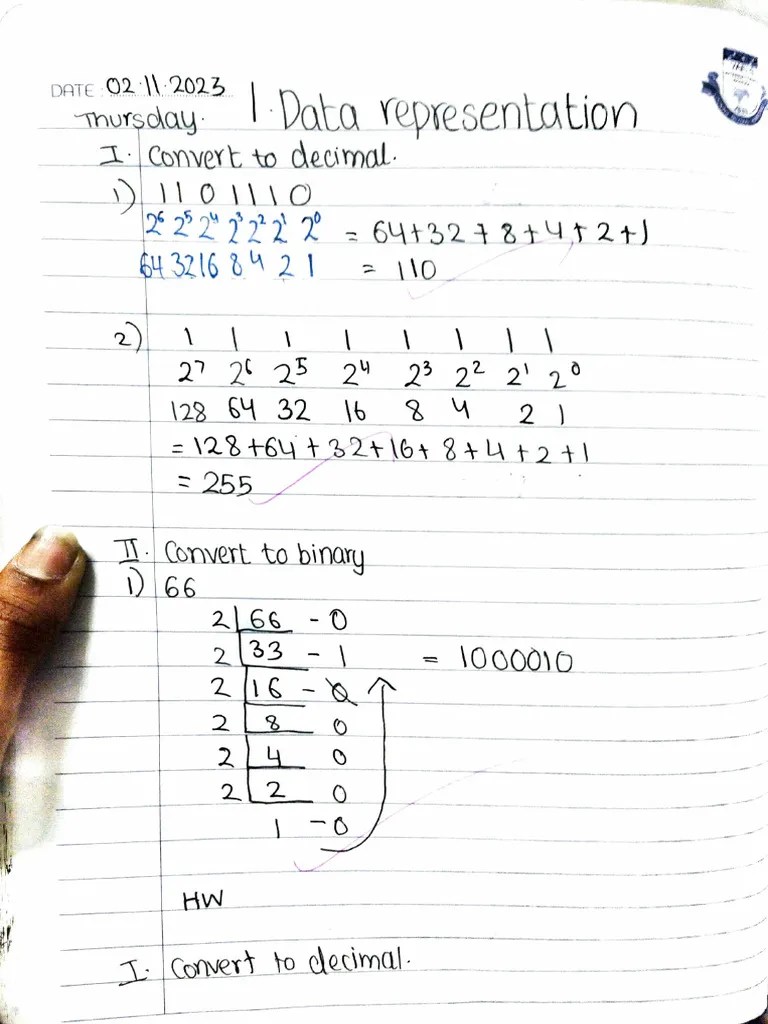 DATE: 02.11.2023
Thursday.
1. Data representation
I. Convert to decimal.
1) 1101110
2⁶ 2⁵ 2⁴ 2³ 2² 2¹ 2⁰ = 64+32+8+4+2+1
64 32 16 8 4 2 1 = 110
2) 1 1 1 1 1 1 1 1
2⁷ 2⁶ 2⁵ 2⁴ 2³ 2² 2¹ 2⁰
128 64 32 16 8 4 2 1
= 128+64+32+16+8+4+2+1
= 255
II. Convert to binary
1) 66
2 66 - 0
2 33 - 1 = 1000010
2 16 - 0
2 8 0
2 4 0
2 2 0
1 - 0
HW
I. Convert to decimal.